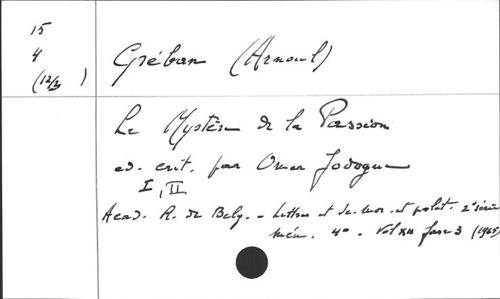 15
4
(12/3)
Gréban (Arnoul)
Le Mystère de la Passion
ed. crit. par Omer Jodogne
I, II
Acad. R. de Belg. - Lettres et Sc. mor. et polit. 2e série
Mém. 4o - Vol XII fasc 3 (1965)